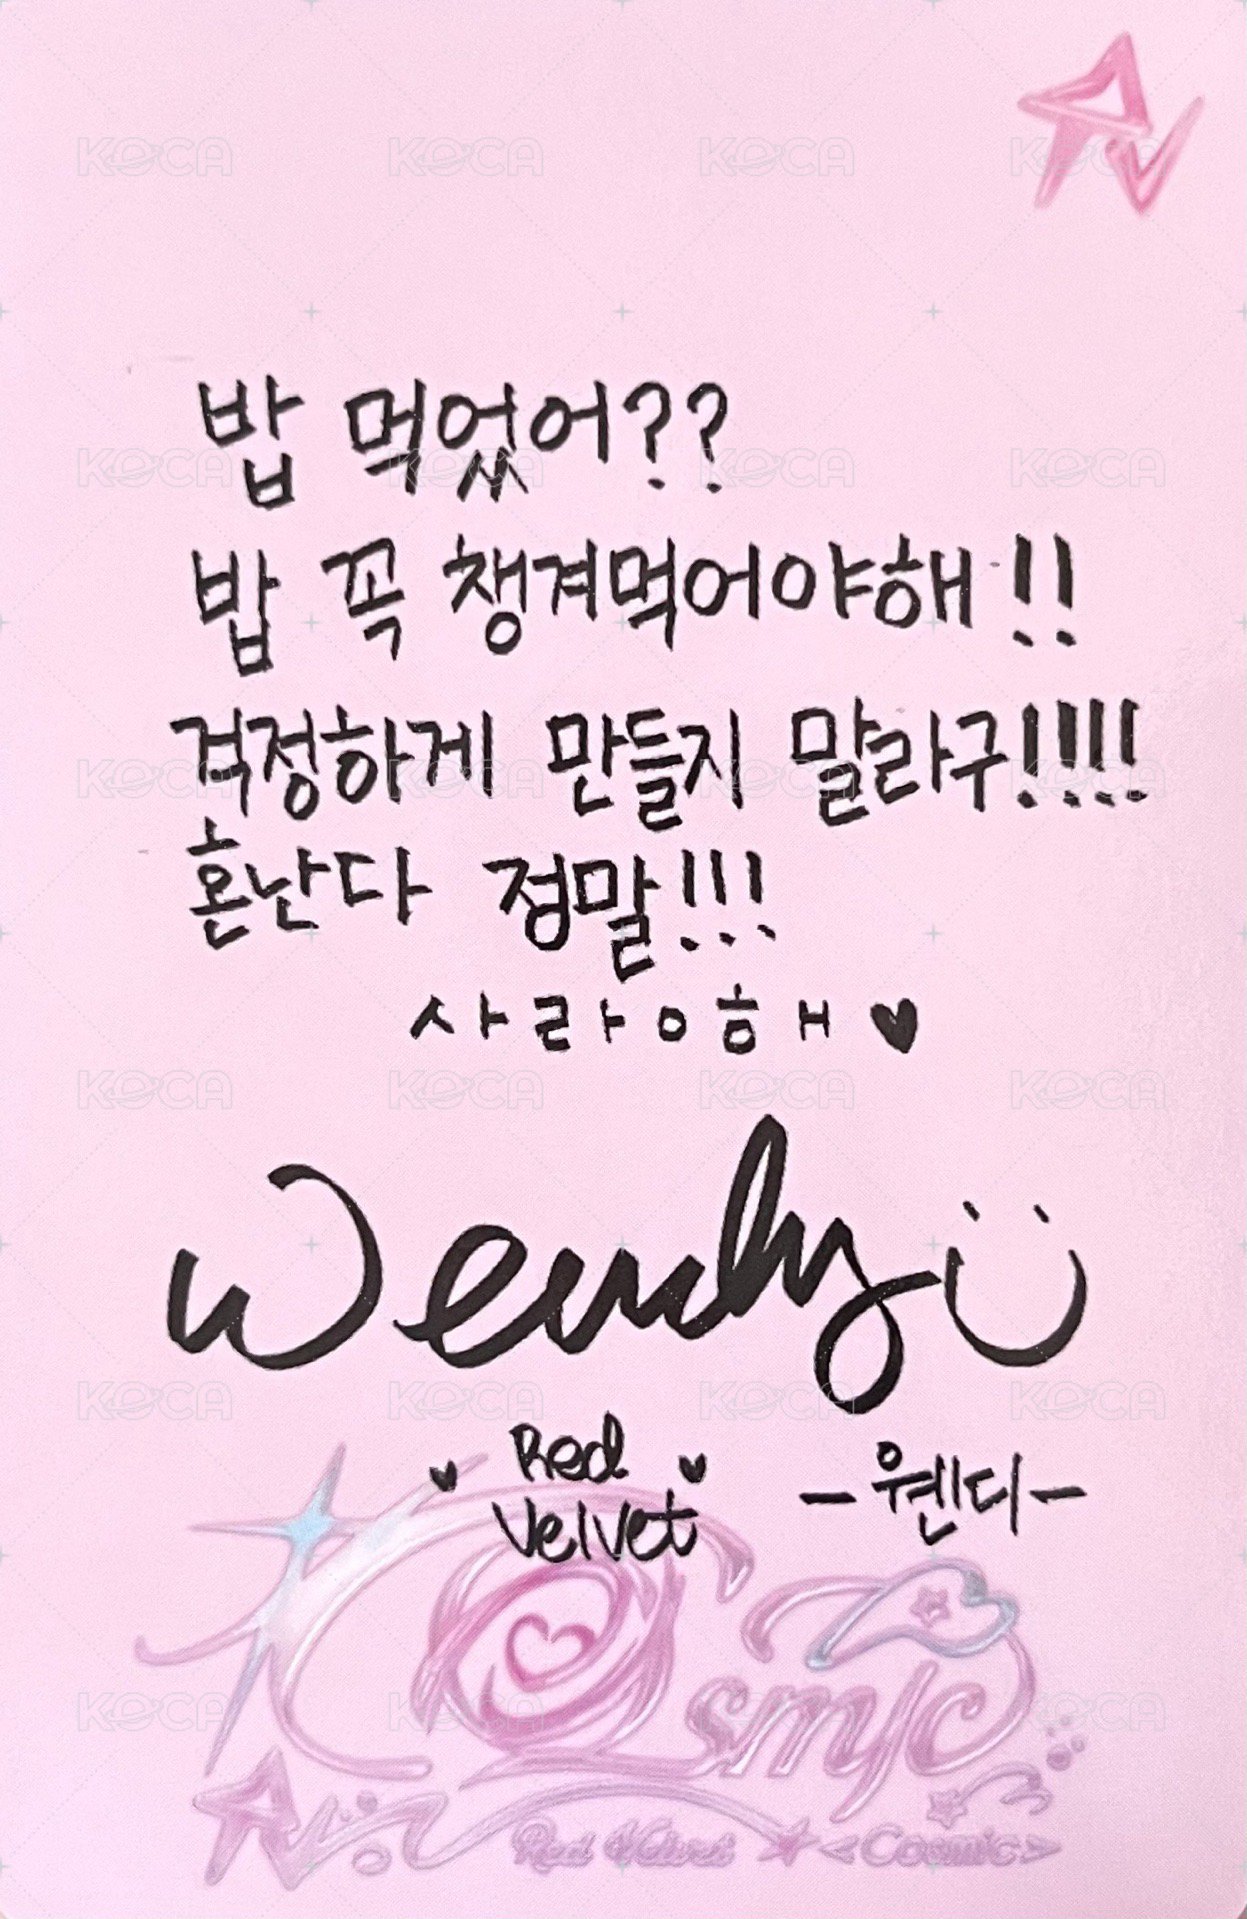 RV
밥 먹었어??
밥 꼭 챙겨먹어야해!!
걱정하게 만들지 말라구!!!!
혼난다 정말!!!
사라ㅇ해♥
Wendy
Red
Velvet
-웬디-
Cosmic
RV
Red Velvet ★ <Cosmic>
KOCA